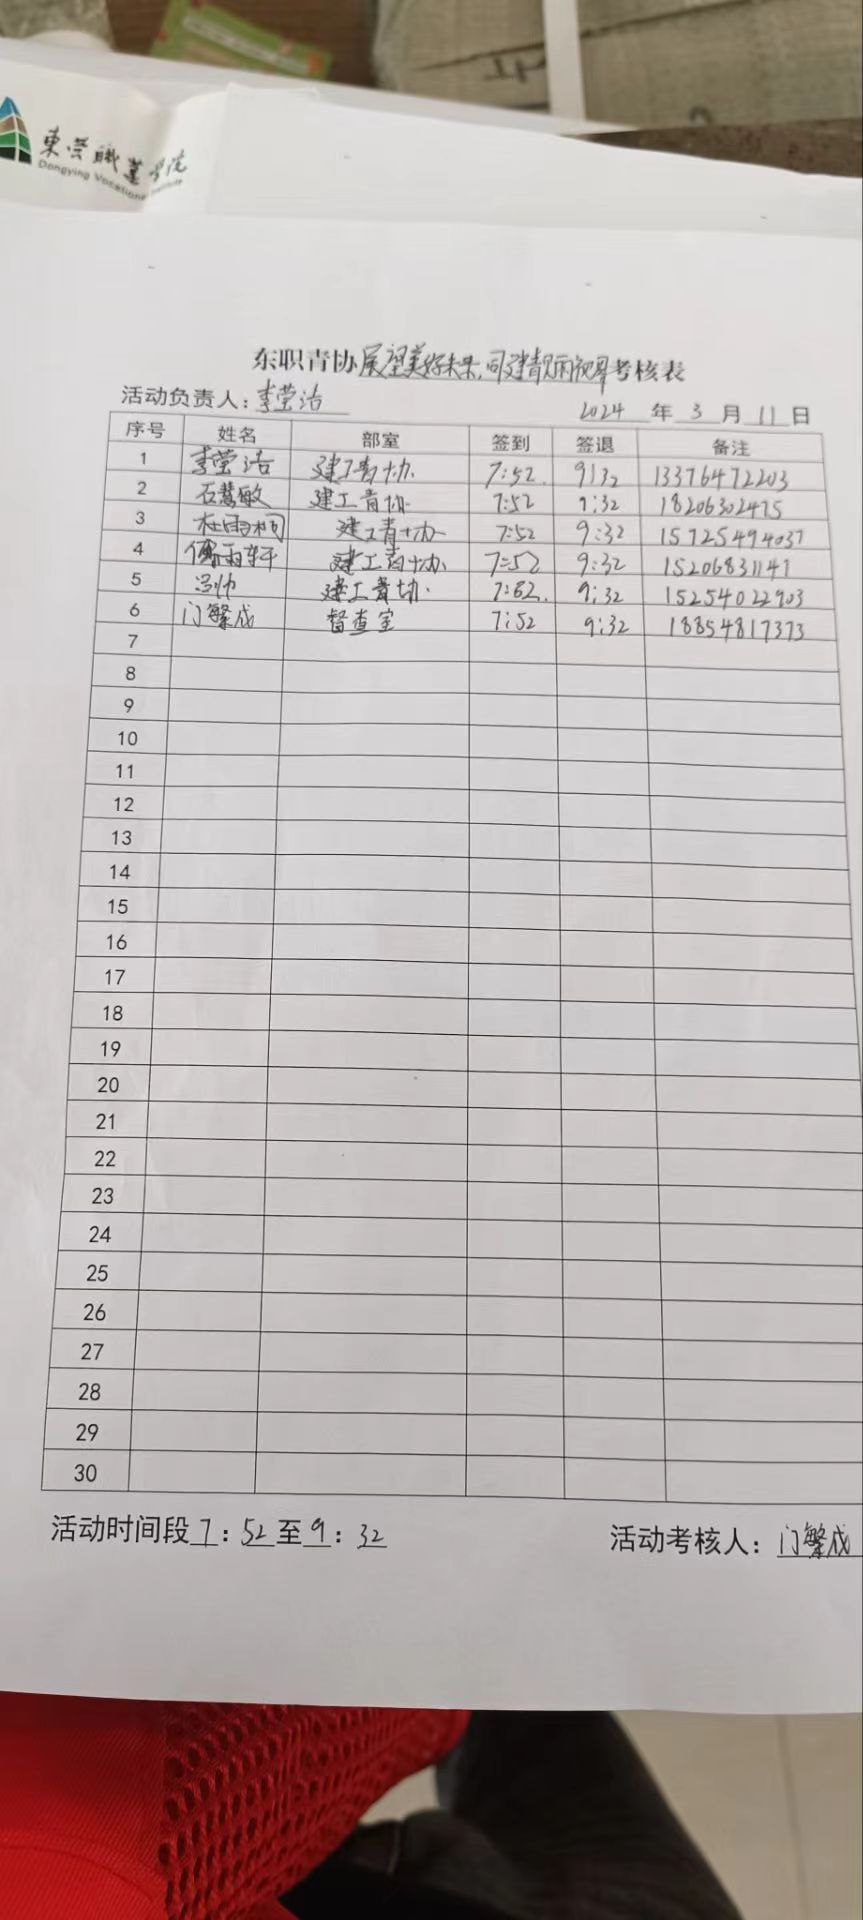 東营職業学院
Dongying Vocational Institute
东职青协展望美好未来,同建靓丽视界考核表
活动负责人:李莹洁
2024 年 3 月 11 日
序号 姓名 部室 签到 签退 备注
1 李莹洁 建工青协 7:52. 9:32 13376472203
2 石慧敏 建工青协 7:52 9:32 18206302475
3 杜雨桐 建工青协 7:52 9:32 15725494037
4 雨轩 建工青协 7:52 9:32 15206831147
5 冯帅 建工青协. 7:52. 9:32 15254022903
6 门繁成 督查室 7:52 9:32 18854817373
7
8
9
10
11
12
13
14
15
16
17
18
19
20
21
22
23
24
25
26
27
28
29
30
活动时间段 7:52 至 9:32
活动考核人:门繁成